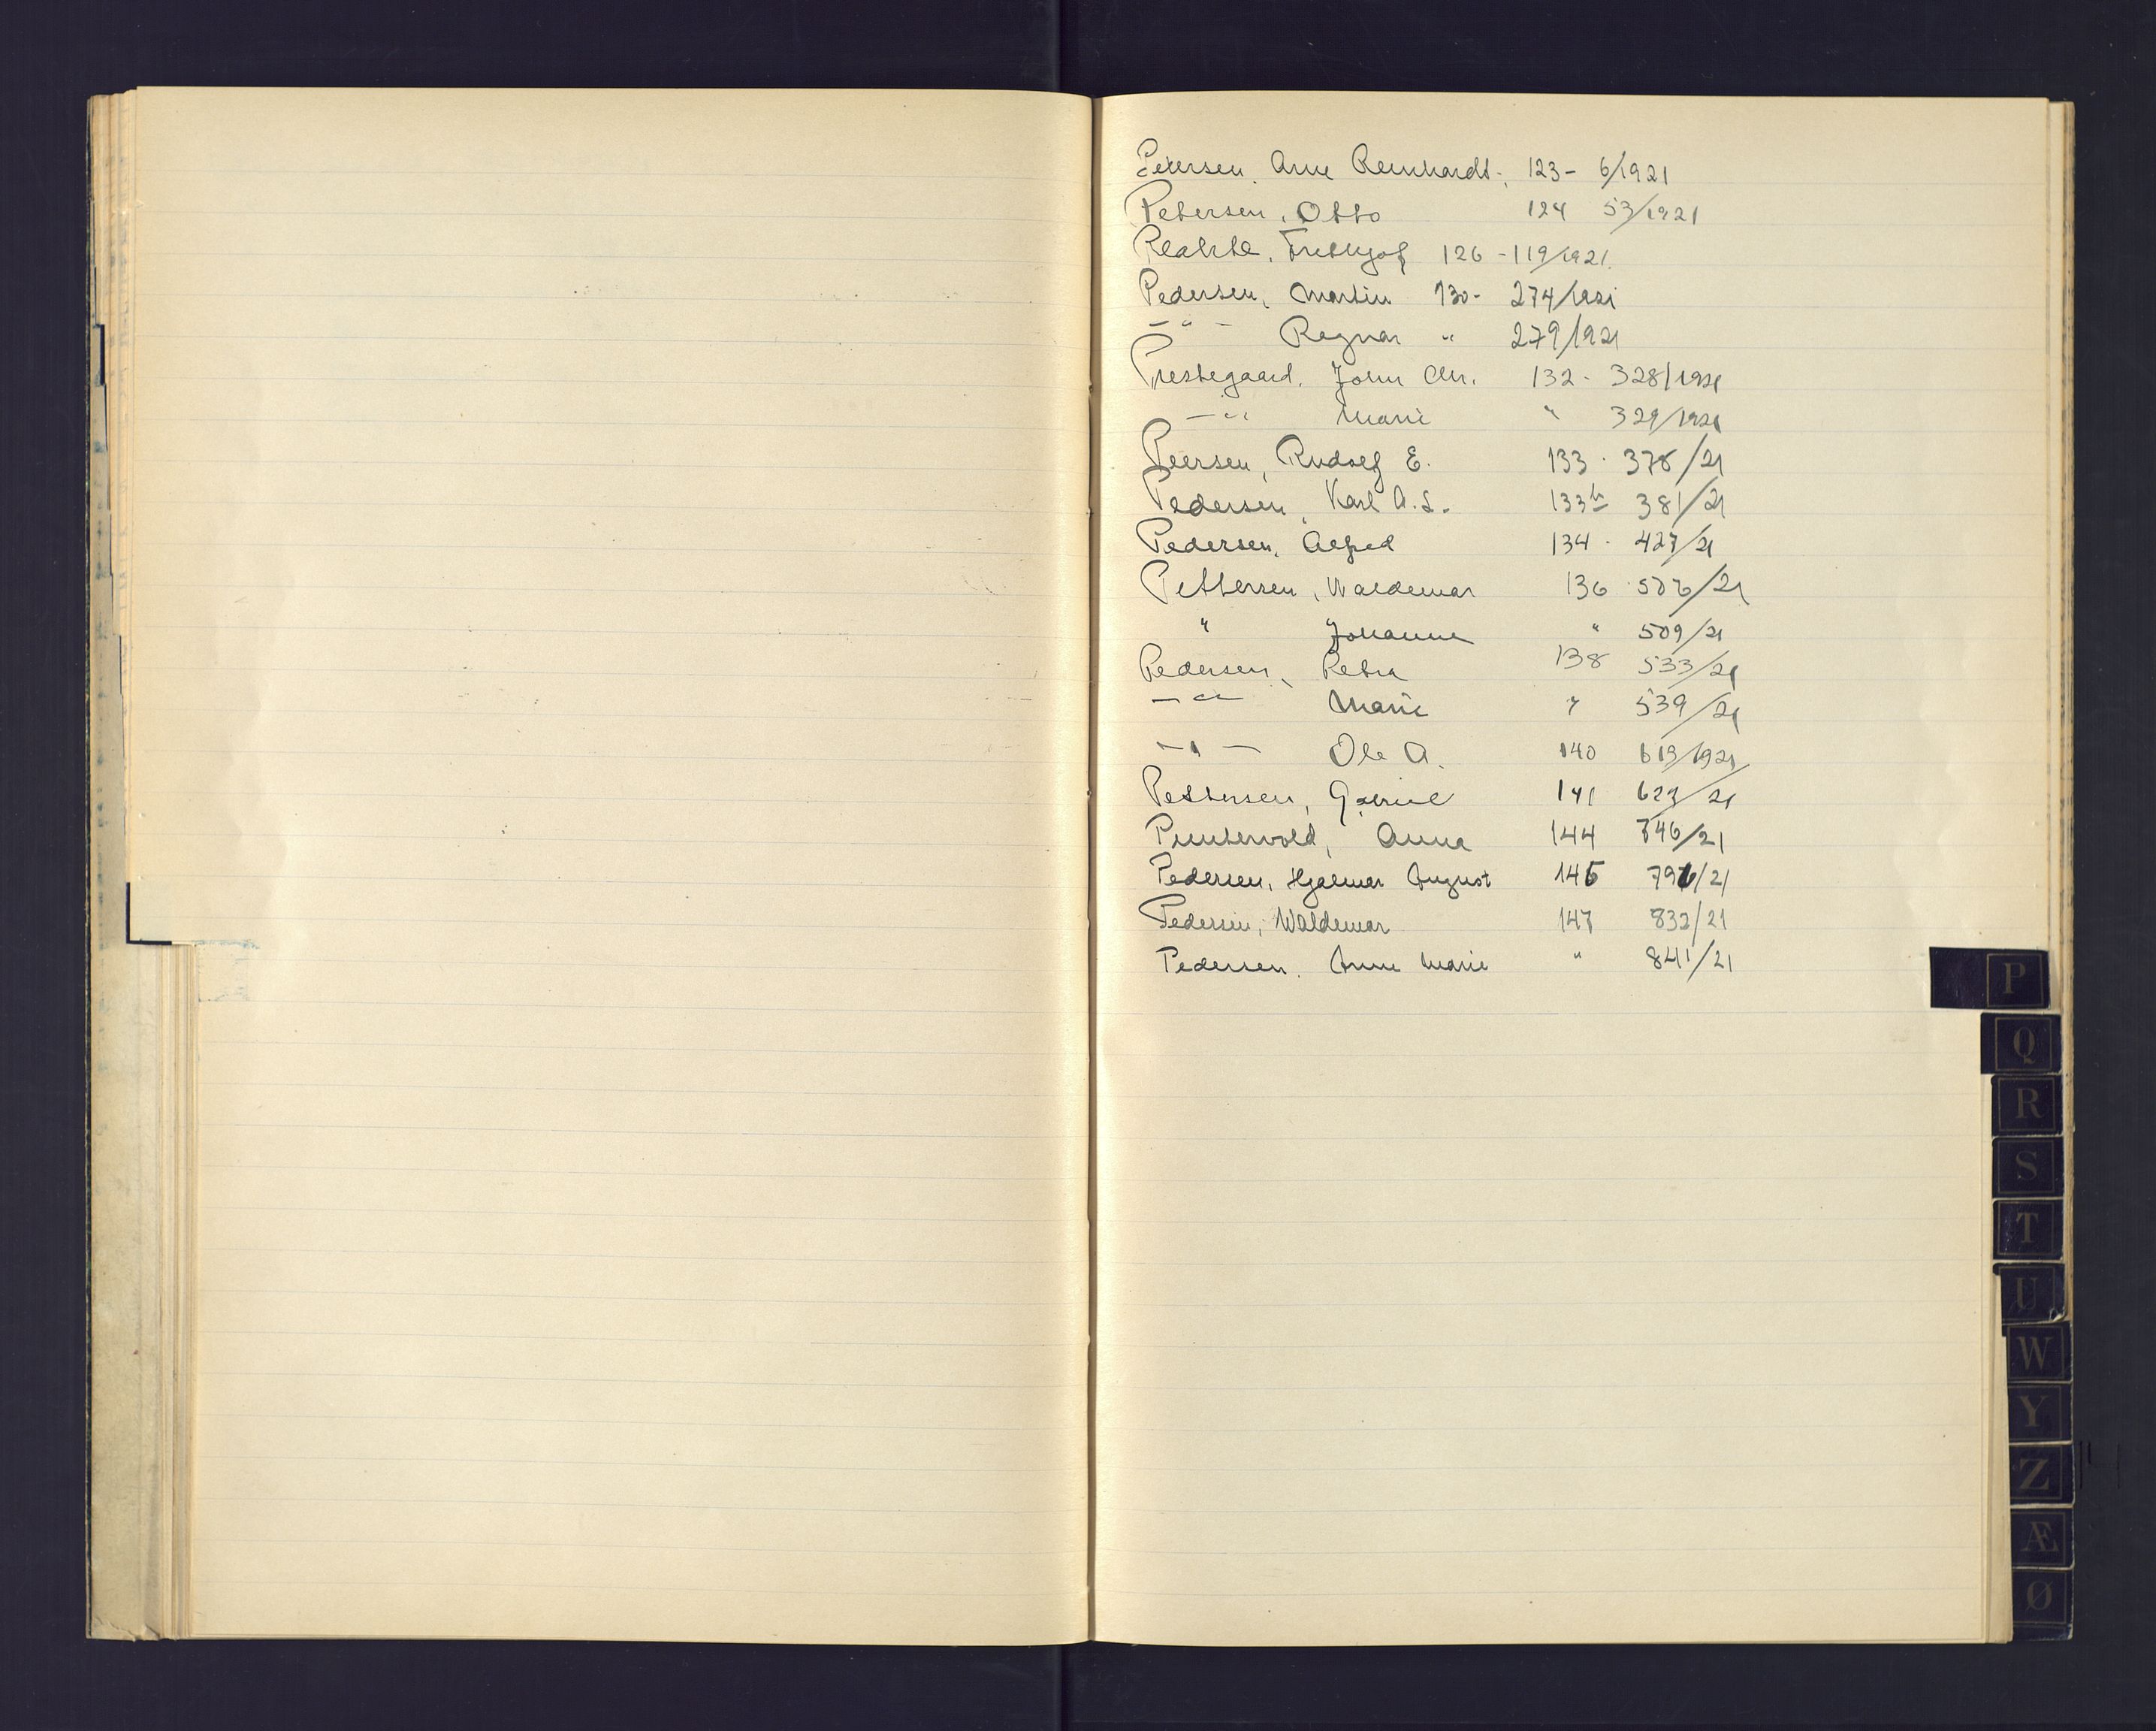 Petersen, Arne Reinhardt. 123 - 6/1921
Petersen, Otto 124 53/1921
Frithjof 126 - 119/1921.
Pedersen, Martin 130 - 274/1921
- " - Ragnar " 279/1921
Prestegaard, John Chr. 132 - 328/1921
- " Marie " 329/1921
Peersen, Rudolf E. 133 - 378/21
Pedersen, Karl A.S. 133b 381/21
Pedersen, Alfred 134 - 427/21
Pettersen, Waldemar 136 506/21
" Johanne " 509/21
Pedersen, Petra 138 533/21
- " - Marie " 539/21
- " - Ole A. 140 613/1921
Pettersen, Gabriel 141 627/21
Puntervold, Anna 144 746/21
Pedersen, Hjalmar August 145 796/21
Pedersen, Waldemar 147 832/21
Pedersen, Anne Marie " 841/21
P
Q
R
S
T
U
W
Y
Z
Æ
Ø